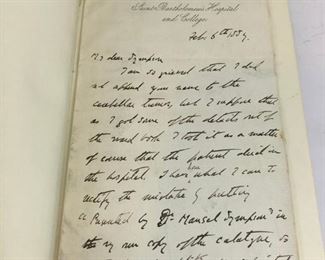 Saint Bartholomew's Hospital
and College.
Feb. 6th 1889.
My dear Sympson
I am so grieved that I did
not append your name to the
cerebellar tumor, but I suppose that
as I got some of the details out of
the ward book I took it as a matter
of course that the patient died in
the hospital. I have done what I can to
rectify the mistake by putting
"Presented by Dr Mansel Sympson" in
the new copy of the catalogue, so